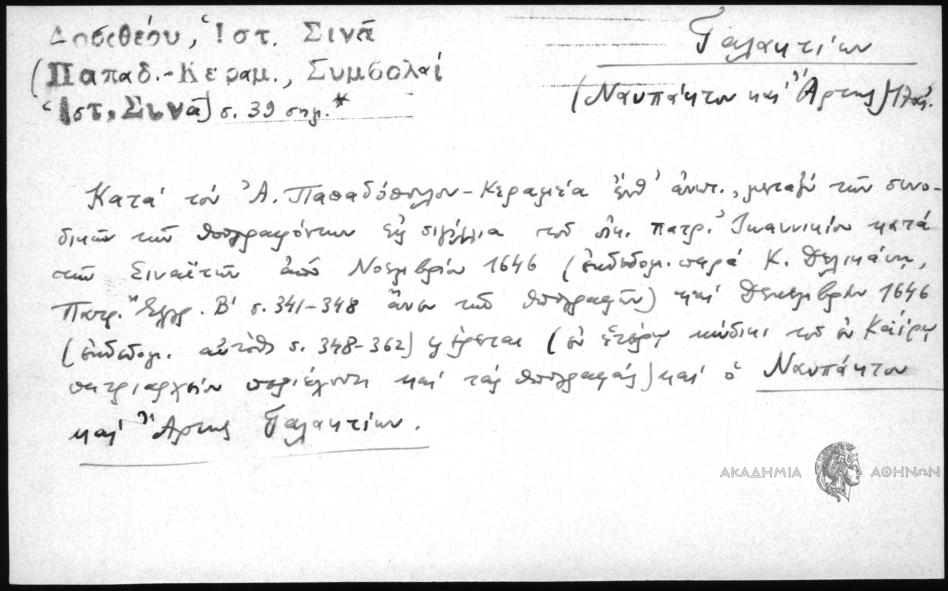 Δοσιθέου, Ἱστ. Σινᾶ
(Παπαδ.-Κεραμ., Συμβολαί
Ἱστ. Σινᾶ) σ. 39 σημ.*
Γαλακτίων
(Ναυπάκτου καὶ Ἄρτης)
Κατὰ τὸν Ἀ. Παπαδόπουλον-Κεραμέα ἔνθ' ἀνωτ., μεταξὺ τῶν συνο-
δικῶν τῶν ὑπογραφόντων εἰς σιγίλλια τοῦ οἰκ. πατρ. Ἰωαννικίου κατὰ
τῶν Σιναϊτῶν ἀπὸ Νοεμβρίου 1646 (ἐκδεδομ. παρὰ Κ. Δελικάνῃ,
Πατρ. Ἔγγρ. Β' σ. 341-348 ἄνευ τῶν ὑπογραφῶν) καὶ Δεκεμβρίου 1646
(ἐκδεδομ. αὐτόθι σ. 348-362) φέρεται (ἐν ἑτέρῳ κώδικι τοῦ ἐν Καΐρῳ
πατριαρχείου περιέχοντι καὶ τὰς ὑπογραφάς) καὶ ὁ Ναυπάκτου
καὶ Ἄρτης Γαλακτίων.
ΑΚΑΔΗΜΙΑ ΑΘΗΝΩΝ